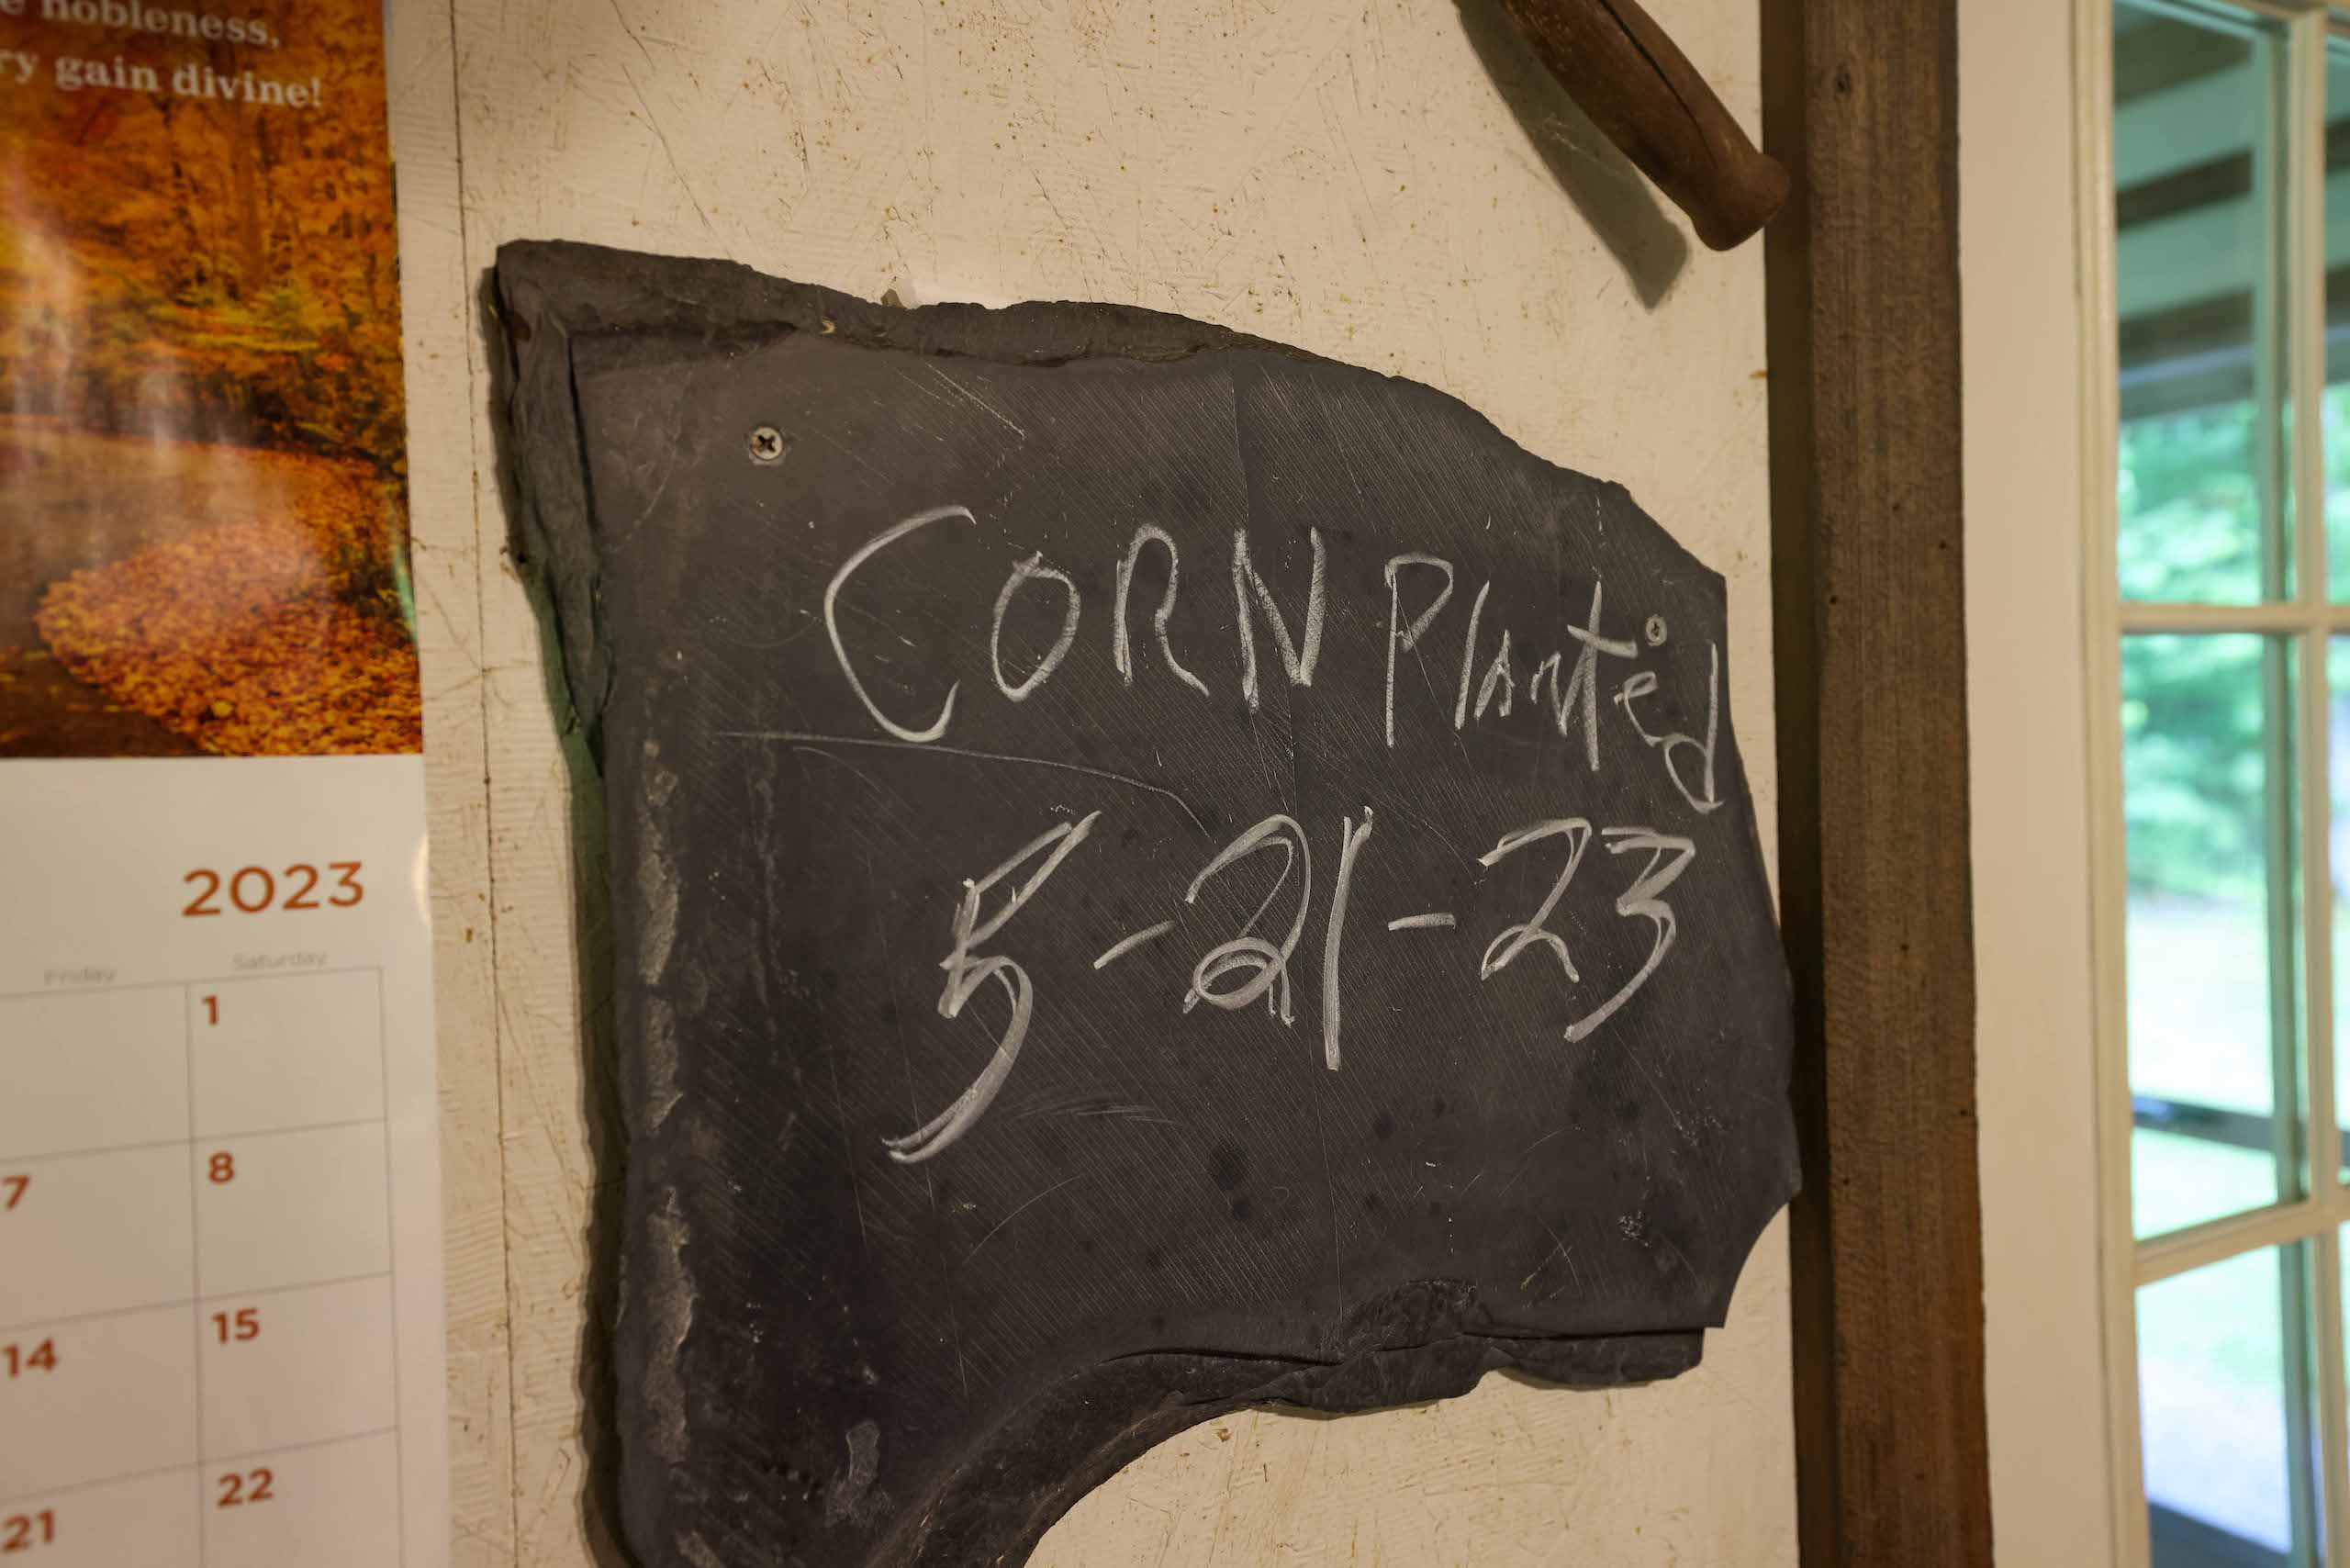 nobleness,
gain divine!
2023
Friday Saturday
1
7 8
14 15
21 22
CORN Planted
5-21-23